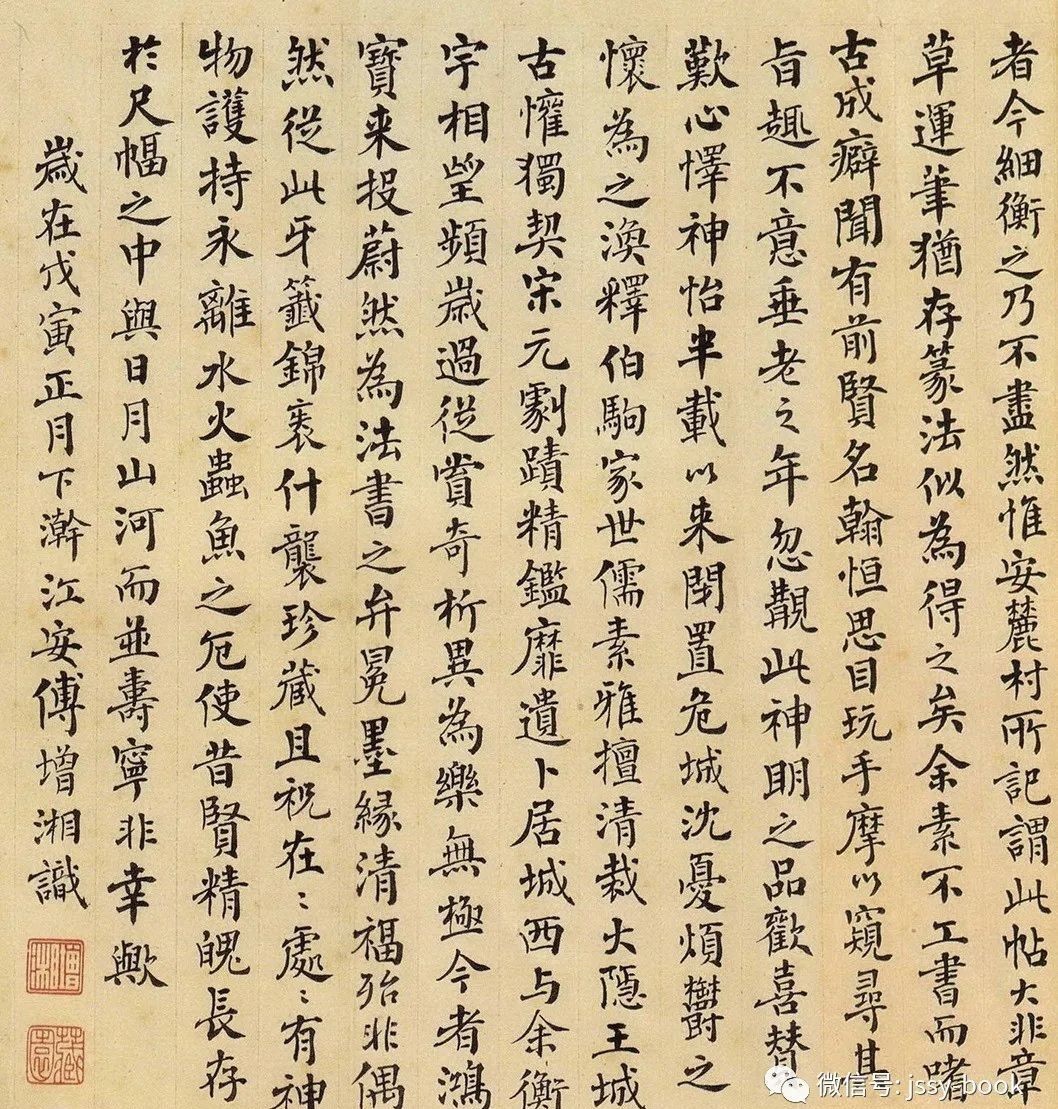 者今細衡之乃不盡然惟安麓村所記謂此帖大非章
草運筆猶存篆法似為得之矣余素不工書而嗜
古成癖聞有前賢名翰恒思目玩手摩以窺尋其
旨趣不意垂老之年忽覩此神明之品歡喜贊
歎心懌神怡半載以来閉置危城沈憂煩鬱之
懷為之渙釋伯駒家世儒素雅擅清裁大隱王城
古懽獨契宋元劇蹟精鑑靡遺卜居城西与余衡
宇相望頻歳過從賞奇析異為樂無極今者鴻
寳来投蔚然為法書之弁冕墨緣清福殆非偶
然從此牙籤錦裹什襲珍藏且祝在〻處〻有神
物護持永離水火蟲魚之厄使昔賢精魄長存
於尺幅之中與日月山河而並壽寧非幸歟
歳在戊寅正月下澣江安傅增湘識
增湘
藏園
微信号: jssy-book